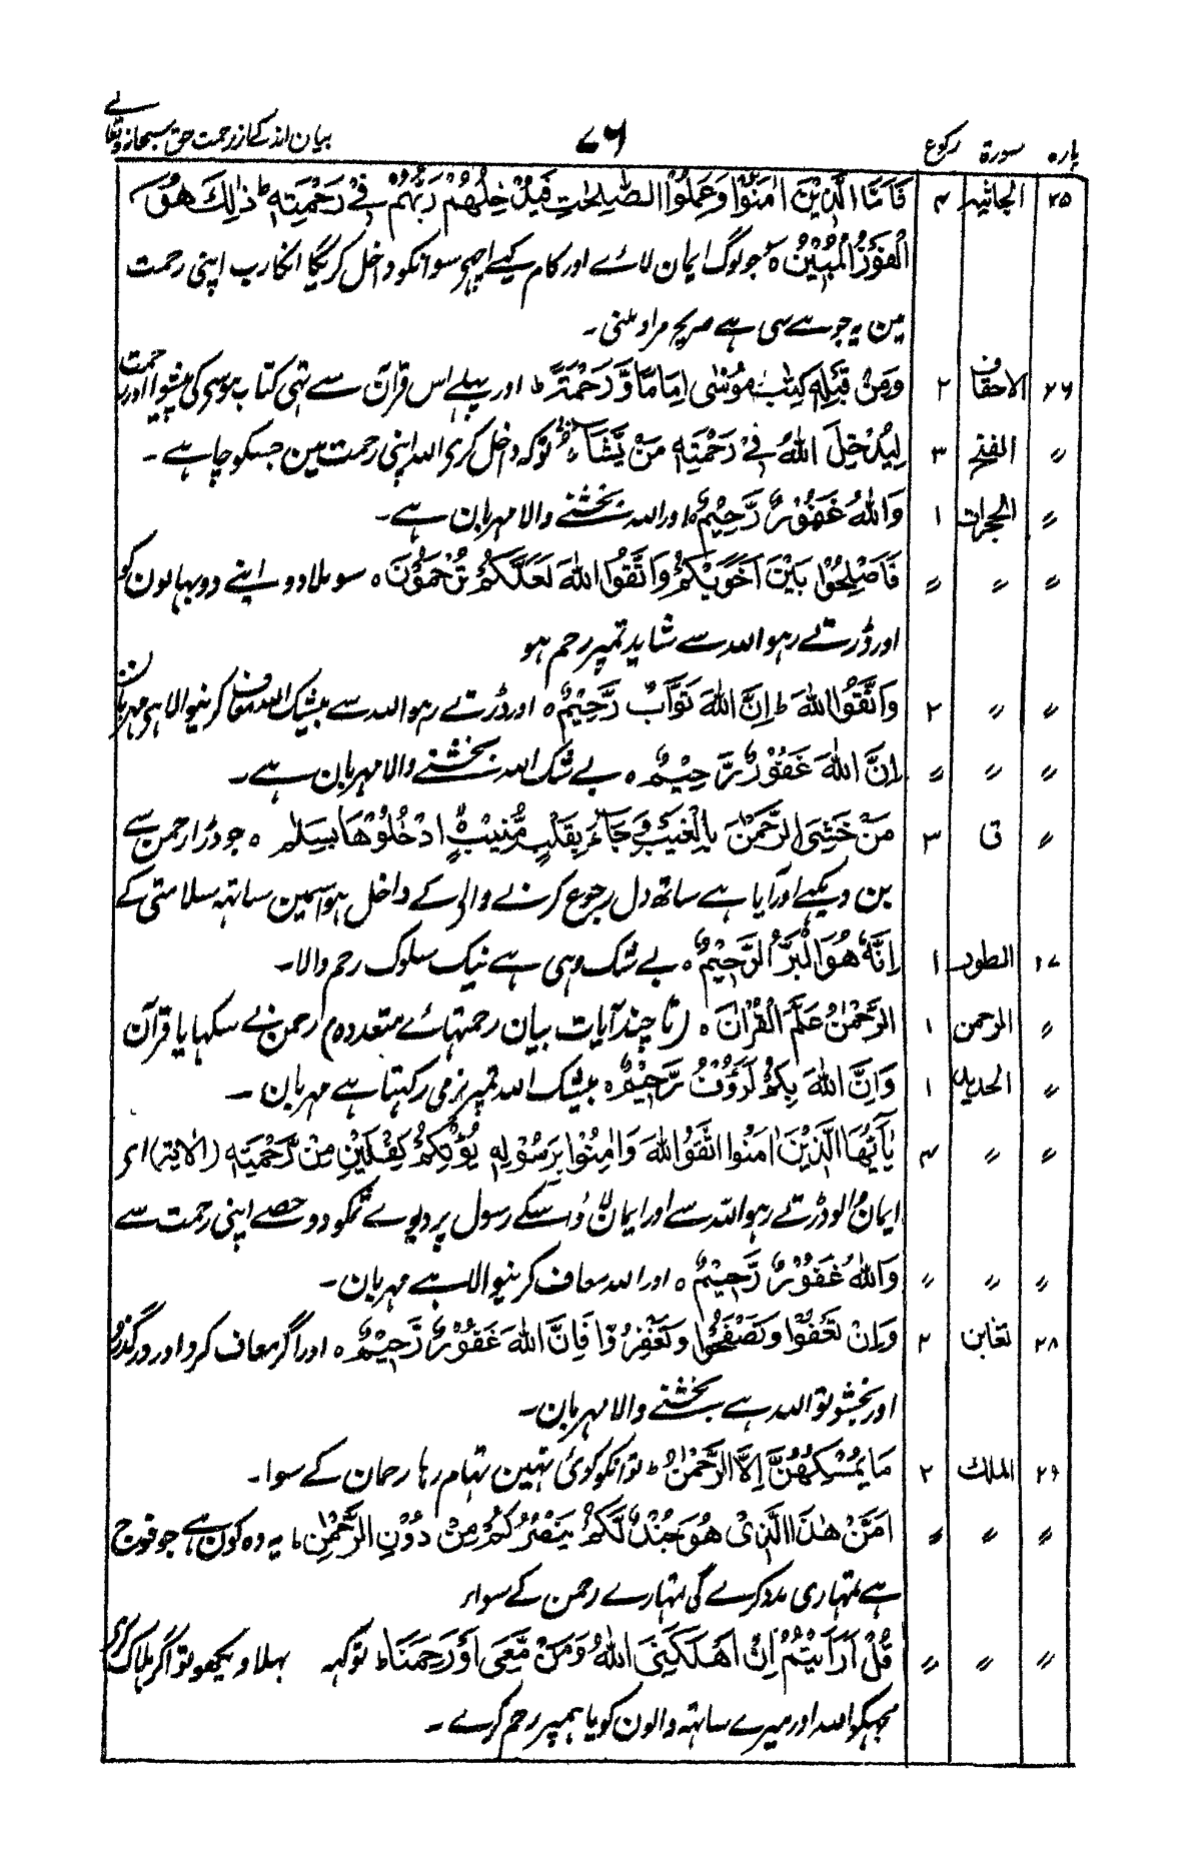 پارہ سورۃ رکوع ۷۶ بیان اندکے از رحمت حق سبحانہ وتعالے
۲۵ الجاثیہ ۴ فَاَمَّا الَّذِیْنَ اٰمَنُوْا وَعَمِلُوا الصّٰلِحٰتِ فَیُدْخِلُهُمْ رَبُّهُمْ فِیْ رَحْمَتِهٖ ؕ ذٰلِكَ هُوَ
الْفَوْزُ الْمُبِیْنُ ہ جو لوگ ایمان لائے اور کام کیے اچھے سو انکو داخل کریگا انکا رب اپنی رحمت
مین یہ جو ہے سی ہے صریح مراد ملنی ۔
۲۶ الاحقاف ۲ وَمِنْ قَبْلِهٖ کِتٰبُ مُوْسٰی اِمَامًا وَّرَحْمَةً ؕ اور پہلے اس قرآن سے تہی کتاب موسی کی پیشوا اور رحمت
〃 الفتح ۳ لِیُدْخِلَ اللّٰهُ فِیْ رَحْمَتِهٖ مَنْ یَّشَآءُ تو کہ داخل کری اللہ اپنی رحمت مین جسکو چاہے ۔
〃 الحجرات ۱ وَاللّٰهُ غَفُوْرٌ رَّحِیْمٌ ہ اور اللہ بخشنے والا مہربان ہے ۔
〃 〃 〃 فَاَصْلِحُوْا بَیْنَ اَخَوَیْكُمْ وَاتَّقُوا اللّٰهَ لَعَلَّكُمْ تُرْحَمُوْنَ ہ سو ملا دو اپنے دو بہایون کو
اور ڈرتے رہو اللہ سے شاید تمپر رحم ہو
〃 〃 ۲ وَاتَّقُوا اللّٰهَ ؕ اِنَّ اللّٰهَ تَوَّابٌ رَّحِیْمٌ ہ اور ڈرتے رہو اللہ سے بیشک اللہ معاف کرنیوالا ہی مہربان
〃 〃 〃 اِنَّ اللّٰهَ غَفُوْرٌ رَّحِیْمٌ ہ بے شک اللہ بخشنے والا مہربان ہے ۔
〃 ق ۳ مَنْ خَشِیَ الرَّحْمٰنَ بِالْغَیْبِ وَجَآءَ بِقَلْبٍ مُّنِیْبٍ ادْخُلُوْهَا بِسَلٰمٍ ہ جو ڈرا رحمن سے
بن دیکہے اور آیا ہے ساتھ دل رجوع کرنے والی کے داخل ہو اسمین ساتہہ سلامتی کے
۲۷ الطور ۱ اِنَّهٗ هُوَ الْبَرُّ الرَّحِیْمُ ہ بے شک وہی ہے نیک سلوک رحم والا ۔
〃 الرحمن ۱ اَلرَّحْمٰنُ عَلَّمَ الْقُرْاٰنَ ہ (تا چند آیات بیان رحمتہائے متعددہ) رحمن نے سکہایا قرآن
〃 الحدید ۱ وَاِنَّ اللّٰهَ بِكُمْ لَرَءُوْفٌ رَّحِیْمٌ ہ بیشک اللہ تمپر نرمی رکہتا ہے مہربان ۔
〃 〃 ۴ یٰاَیُّهَا الَّذِیْنَ اٰمَنُوا اتَّقُوا اللّٰهَ وَاٰمِنُوْا بِرَسُوْلِهٖ یُؤْتِكُمْ كِفْلَیْنِ مِنْ رَّحْمَتِهٖ (الایۃ) اے
ایمان والو ڈرتے رہو اللہ سے اور ایمان لاؤ اسکے رسول پر دیوے تمکو دو حصے اپنی رحمت سے
〃 〃 〃 وَاللّٰهُ غَفُوْرٌ رَّحِیْمٌ ہ اور اللہ معاف کرنیوالا ہے مہربان ۔
۲۸ تغابن ۲ وَاِنْ تَعْفُوْا وَتَصْفَحُوْا وَتَغْفِرُوْا فَاِنَّ اللّٰهَ غَفُوْرٌ رَّحِیْمٌ ہ اور اگر معاف کرو اور درگذرو
اور بخشو تو اللہ ہے بخشنے والا مہربان ۔
۲۹ الملك ۲ مَا یُمْسِكُهُنَّ اِلَّا الرَّحْمٰنُ ؕ تو انکو کوئی نہین تہام رہا رحمان کے سوا ۔
〃 〃 〃 اَمَّنْ هٰذَا الَّذِیْ هُوَ جُنْدٌ لَّكُمْ یَنْصُرُكُمْ مِنْ دُوْنِ الرَّحْمٰنِ ؕ یہ وہ کون ہے جو فوج
ہے تمہاری مدد کرے گی تمہارے رحمن کے سواء
〃 〃 〃 قُلْ اَرَاَیْتُمْ اِنْ اَهْلَكَنِیَ اللّٰهُ وَمَنْ مَّعِیَ اَوْ رَحِمَنَا ؕ تو کہہ بہلا دیکھو تو اگر ہلاک کری
مجہکو اللہ اور میرے ساتہہ والون کو یا ہمپر رحم کرے ۔